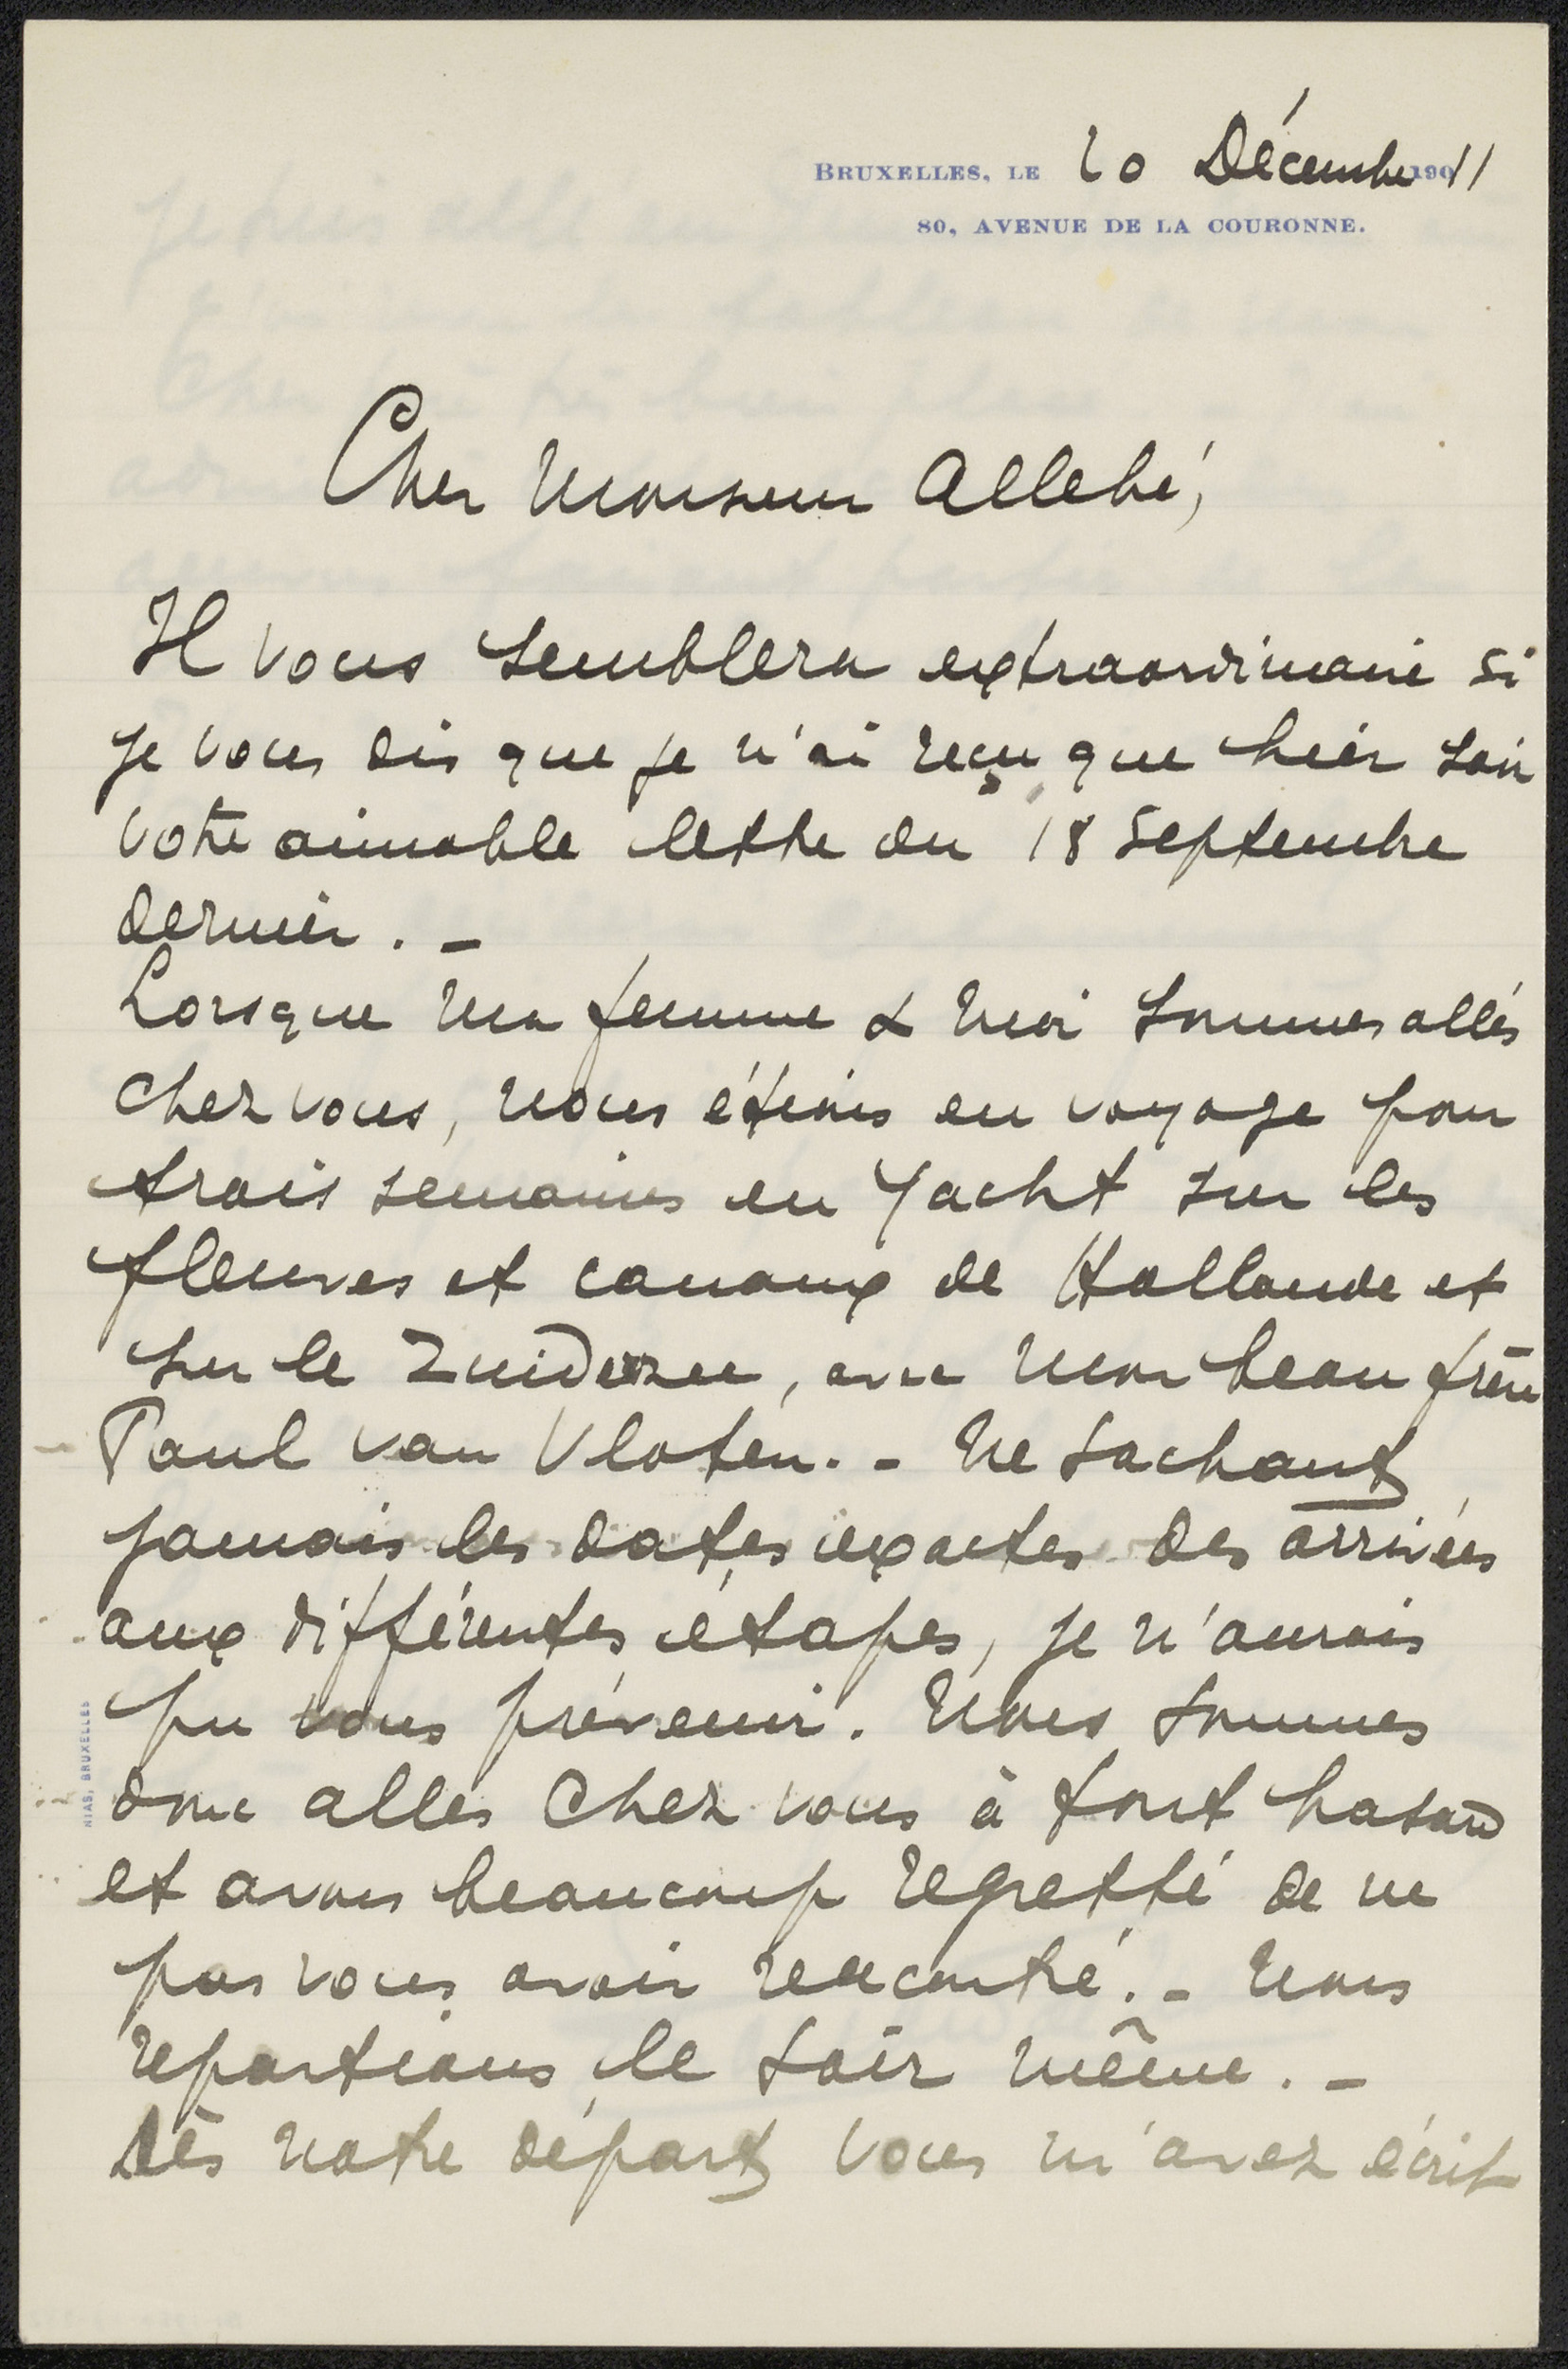 BRUXELLES, LE 20 Décembre 1911
80, AVENUE DE LA COURONNE.
Cher Monsieur Allebé,
Il vous semblera extraordinaire si
je vous dis que je n'ai reçu que hier soir
votre aimable lettre du 18 Septembre
dernier. -
Lorsque ma femme & moi sommes allés
chez vous, nous étions en voyage pour
trois semaines en Yacht sur les
fleuves et canaux de Hollande et
sur le Zuiderzee, avec mon beau frère
Paul van Vloten. - Ne sachant
jamais les dates exactes des arrivées
aux différentes étapes, je n'aurais
pu vous prévenir. Nous sommes
donc allés chez vous à tout hasard
et avons beaucoup regretté de ne
pas vous avoir rencontré. - Nous
repartions le soir même. -
Dès notre départ vous m'avez écrit
NIAS, BRUXELLES